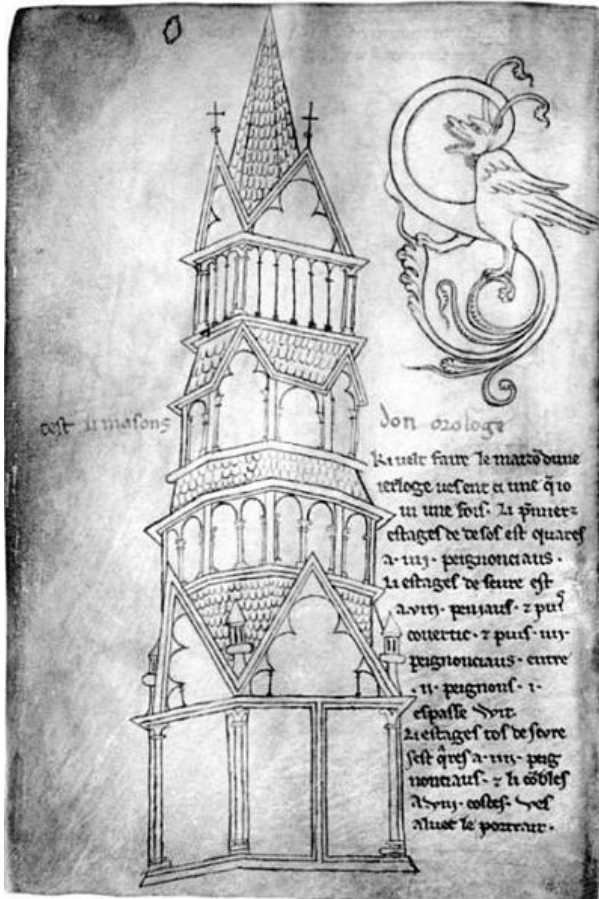 O
cest li masons don orologe
Ki velt faire le maizõ dune
ierloge ves ent ci une q̃ io
vi une fois. Li p̃miers
estages de desos est quares
a .iiii. peignonciaus.
Li estages de seure est
a .viii. peniaus. ⁊ puis
covertic. ⁊ puis .iiii.
peignonciaus. entre
.ii. peignons .i.
espasse wit.
Li estages tos de sevre
sest q̃res a .iiii. peig
nonciaus. ⁊ li cõbles
a .viii. costes. ves
aluec le portrait.